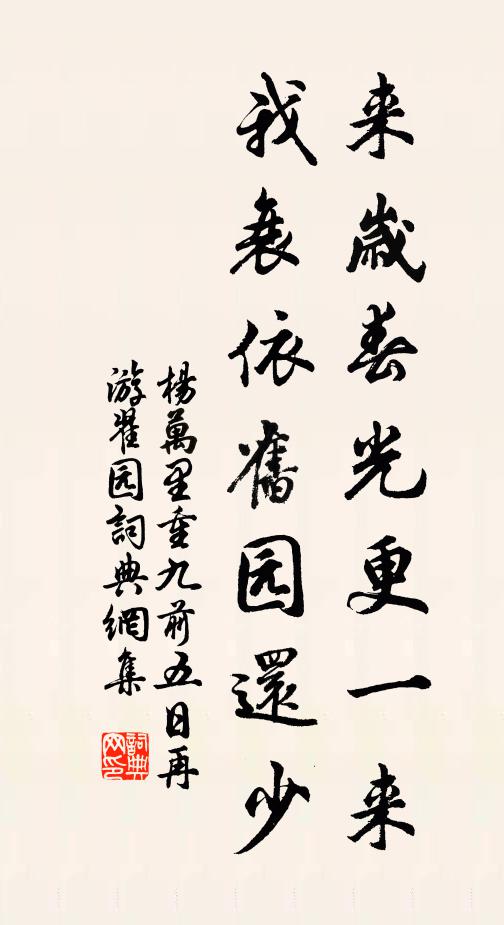 来歲春光更一来
我衰依舊园還少
楊萬里重九前五日再
游翟园詞典網集
詞典网印